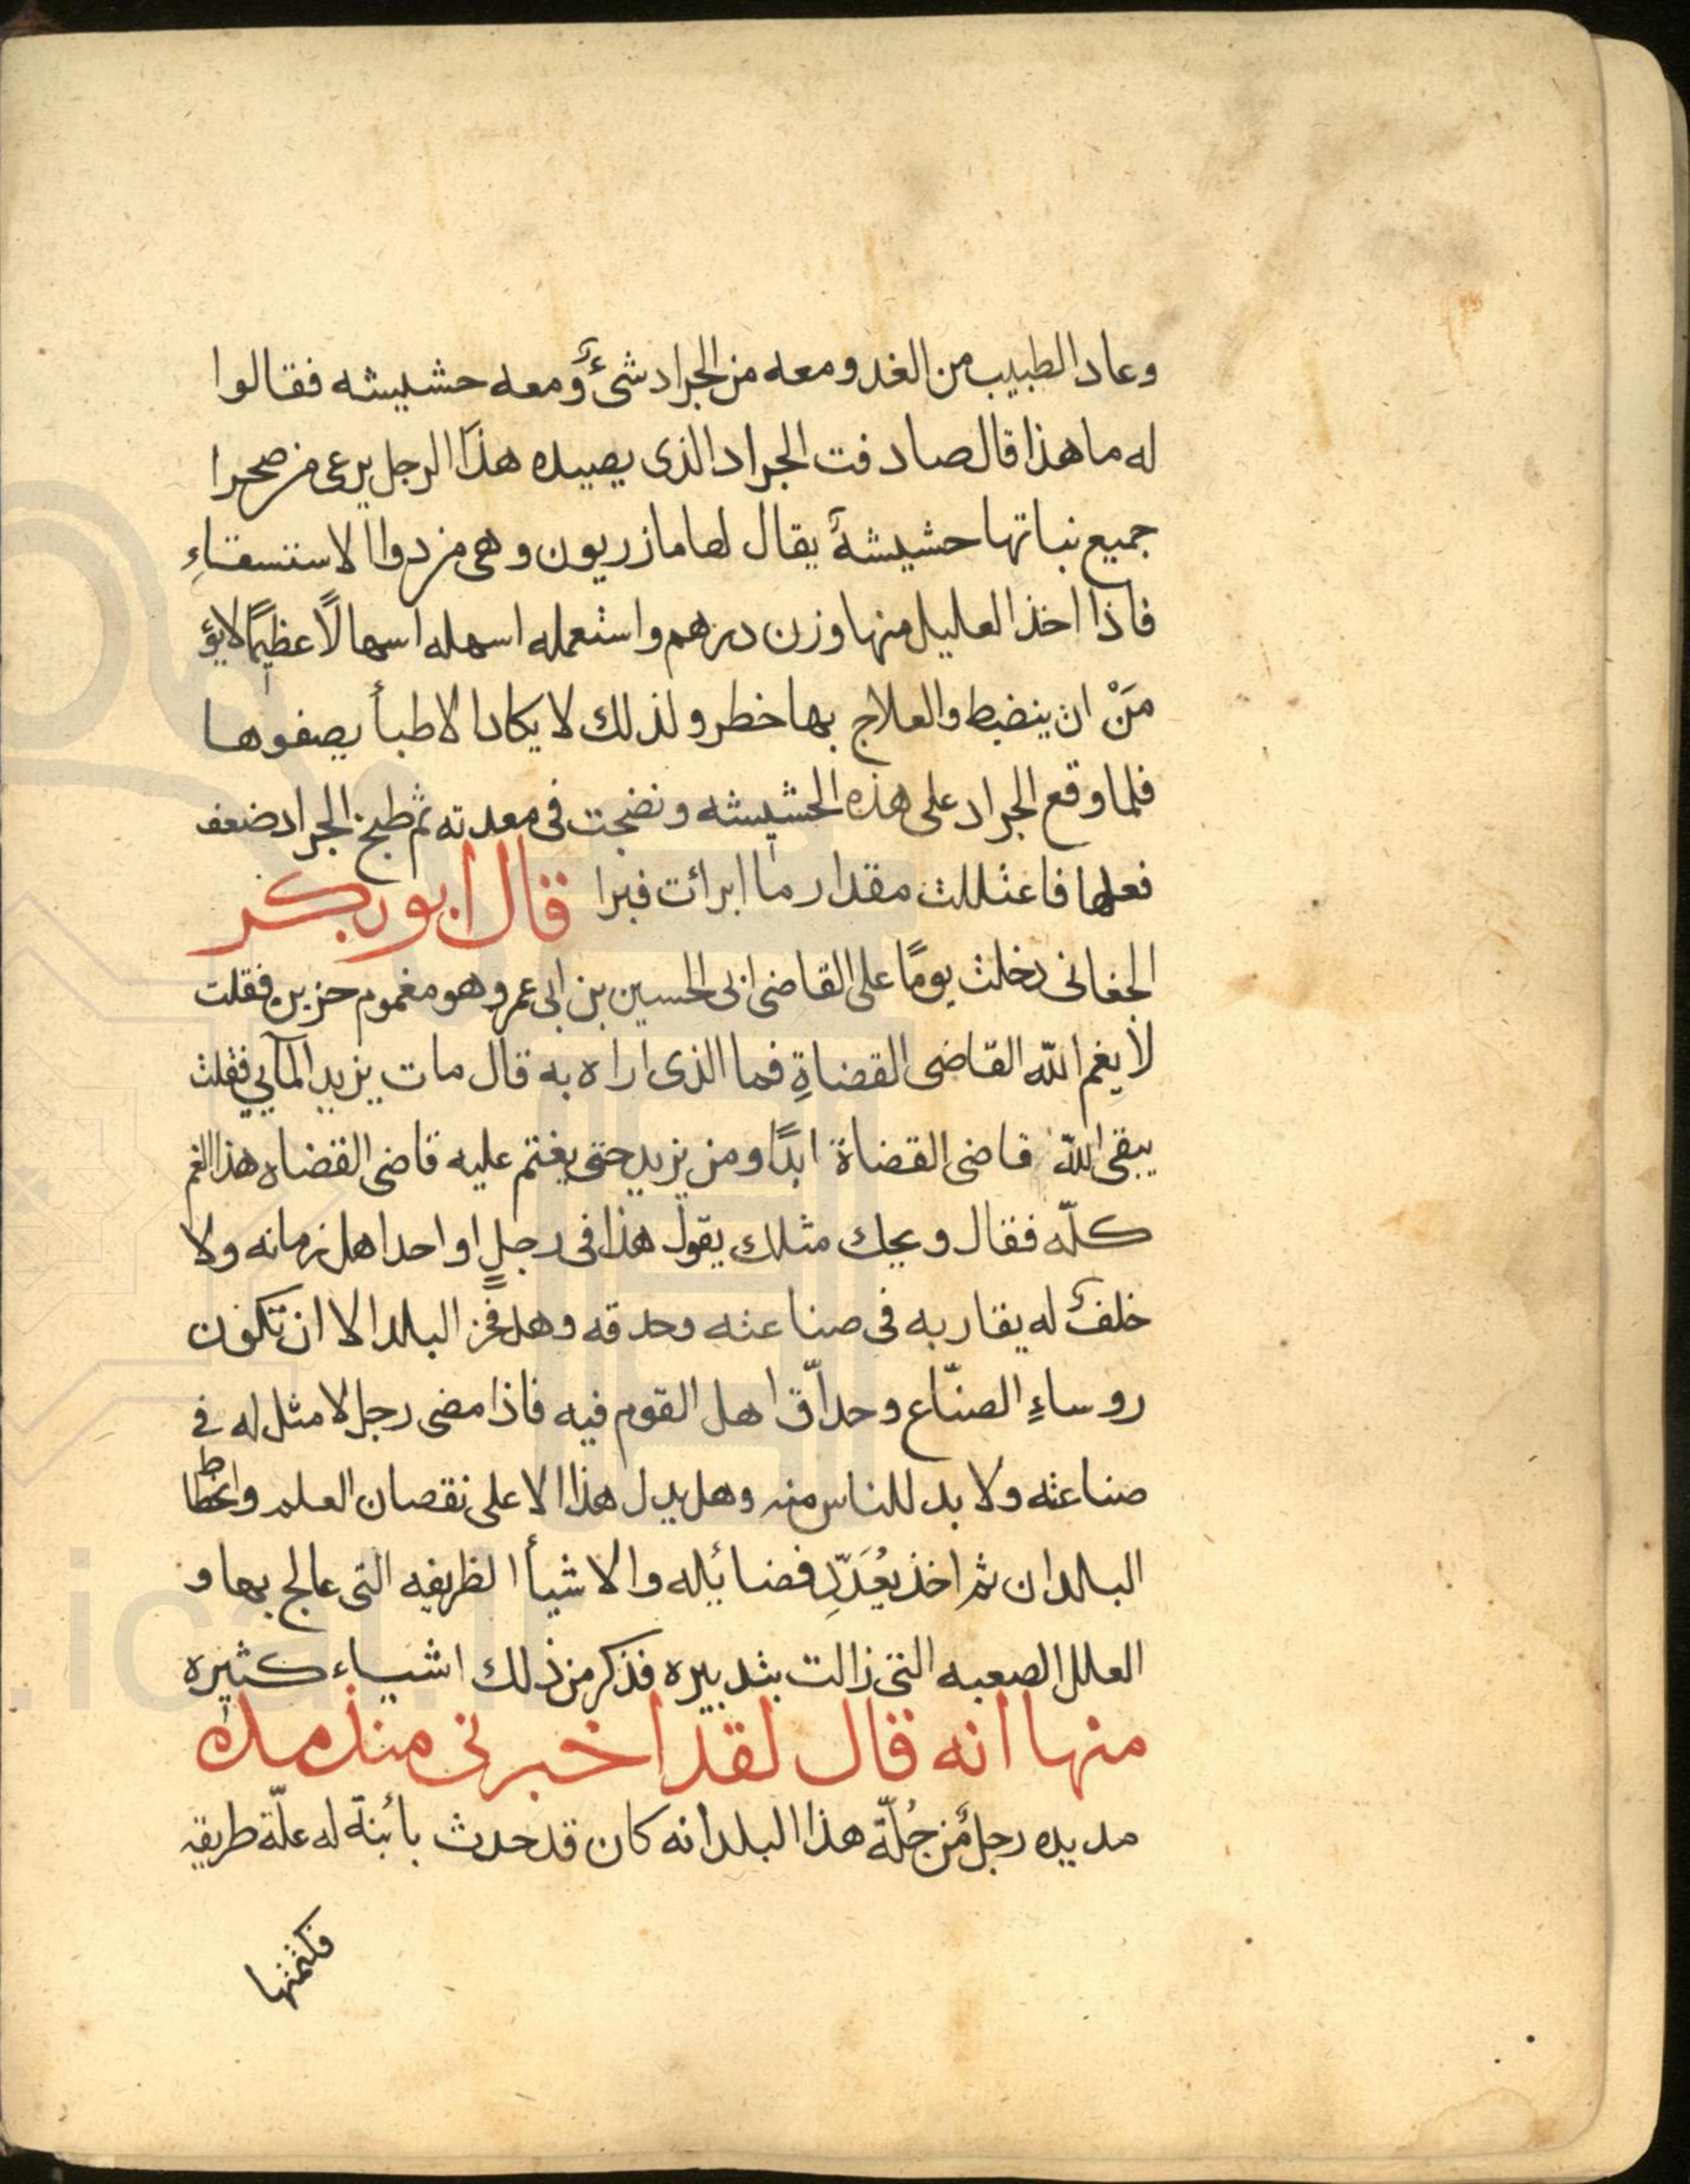 وعاد الطبيب من الغد ومعه من الجراد شیءٌ ومعه حشيشه فقالوا
له ما هذا قال صادفت الجراد الذى يصيده هذا الرجل يرعى من صحرا
جميع نباتها حشيشةٌ يقال لها مازريون وهى من دوا الاستسقاءِ
فاذا اخذ العليل منها وزن درهم واستعمله اسهله اسهالًا عظيمًا لا يؤ
مَنْ ان ينضبط والعلاج بها خطر ولذلك لا يكاد الاطبأ يصفوها
فلما وقع الجراد على هذه الحشيشه ونضجت فى معدته ثم طبخ الجراد ضعف
فعلها فاعتللت مقدار ما ابرائت فبرا قال ابو بكر
الجغانى دخلت يومًا على القاضى ابى الحسين بن ابى عمر وهو مغموم حزين فقلت
لا يغم الله القاضى القضاةِ فما الذى اراه به قال مات يزيد المآيى فقلت
يبقى الله قاضى القضاة ابدًا ومن يزيد حتى يغتم عليه قاضى القضاه هذا الغم
كلّه فقال ويحك مثلك يقول هذا فى رجلٍ اواحد اهل زمانه ولا
خلفٌ له يقاربه فى صناعته وحدقه وهل فخر البلد الا ان تكون
روساءِ الصنّاع وحدّاق اهل القوم فيه فاذا مضى رجل لا مثل له فى
صناعته ولا بد للناس منه وهل يدل هذا الا على نقصان العلم وانحطاط
البلدان ثم اخذ يُعَدّدِ فضائله والاشيأ الظريفه التى عالج بها و
العلل الصعبه التى زالت بتدبيره فذكر من ذلك اشياء كثيره
منها انه قال لقد اخبرنى منذ مده
مديده رجلٌ من جُلّة هذا البلد انه كان قد حدث بأبنة له علّة طريقه
فكتمتها